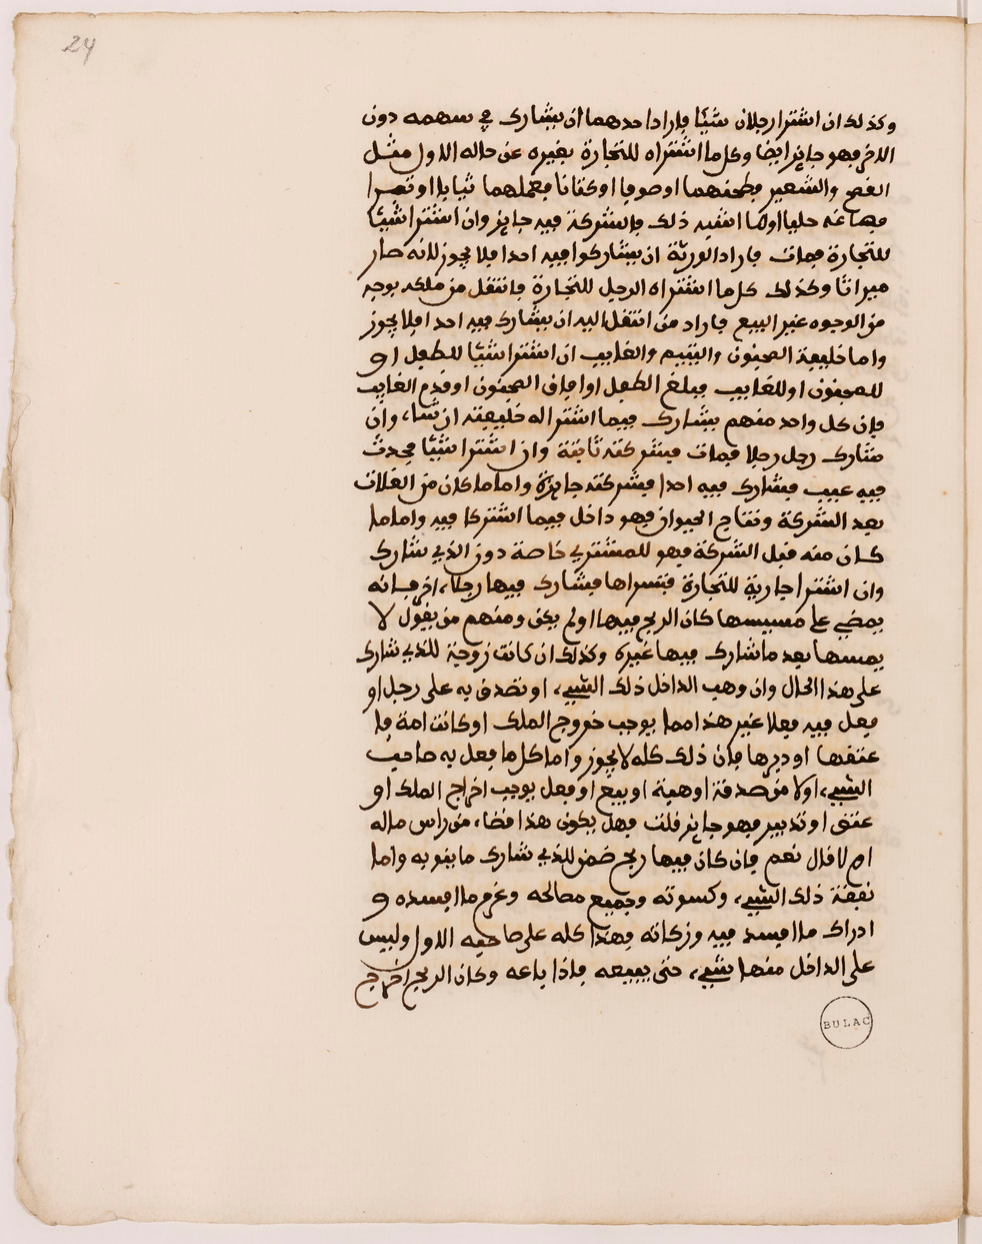 24
وكذلك ان اشترا رجلان شيئا فاراد احدهما ان يشارك في سهمه دون
الاخر فهو جائز ايضا وكل ما اشتراه للتجارة بغيره عن حاله الاول مثل
القمح والشعير فطحنهما اوصوفا اوكتانا فعملهما ثيابا او تبرا
فصاغه حليا اوما اشبه ذلك فالشركة فيه جايز وان اشترا شيئا
للتجارة فمات فاراد الورثة ان يشاركوا فيه احدا فلا يجوز لانه صار
ميراثا وكذلك كل ما اشتراه الرجل للتجارة فانتقل من ملكه بوجه
من الوجوه غير البيع فاراد من انتقل اليه ان يشارك فيه احدا فلا يجوز
واما خليفة المجنون واليتيم والغايب ان اشترا شيئا للطفل او
للمجنون او للغايب فبلغ الطفل اوافاق المجنون اوقدم الغايب
فان كل واحد منهم يشارك فيما اشترا له خليفته ان شاء، وان
شارك رجل رجلا فمات فشركته ثابتة وان اشترا شيئا فحدث
فيه عيب فشارك فيه احدا فشركته جايزة واما ما كان من الغلات
بعد الشركة ونتاج الحيوان فهو داخل فيما اشتركا فيه واما ما
كان منه قبل الشركة فهو للمشتري خاصة دون الذي شارك
وان اشترا جارية للتجارة فتسراها فشارك فيها رجلا، اخر فانه
يمضي على مسيسها كان الربح فيها اولم يكن ومنهم من يقول لا
يمسها بعد ما شارك فيها غيره وكذلك ان كانت زوجة للذي شارك
على هذا الحال وان وهب الداخل ذلك الشيء، اوتصدق به على رجل او
فعل فيه فعلا غير هذا مما يوجب خروج الملك اوكانت امة فا
عتقها اودبرها فان ذلك كله لا يجوز واما كل ما فعل به صاحب
الشيء، اولا من صدقة اوهبة اوبيع اوفعل يوجب اخراج الملك او
عتق اوتدبير فهو جايز قلت فهل يكون هذا قضاء، من راس ماله
ام لا قال نعم فان كان فيها ربح ضمن للذي شارك ما ينوبه واما
نفقة ذلك الشيء، وكسوته وجميع مصالحه وغرم ما افسده و
ادراك ما افسد فيه وزكاته فهذا كله على صاحبه الاول وليس
على الداخل منها شيء، حتى يبيعه فاذا باعه وكان الربح اخرج
BULAC